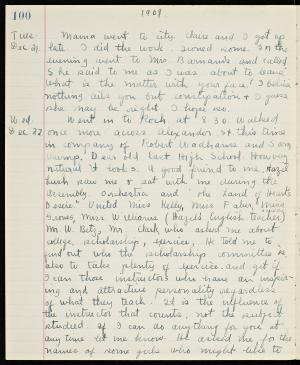 100
1909
Tues.
Dec. 21.
Mama went to city. Claire and I got up
late. I did the work. Ironed some. In the
evening went to Mrs. Barnards and called
& she said to me as I was about to leave
what is the matter with your face! I believe
nothing ails you but constipation & I guess
she may be right I hope so.
Wed.
Dec. 22.
Went in to Roch. at 8.30. Walked
once more across Alexander St. this time
in company of Robert Wadhams and Ivan
Dear old East High School. How
natural it looks. A good friend to me, Hazel
saw me & sat with me during the
assembly. Orchestra and "The Land of Hearts
Desire." Visited Miss Kelly, Miss Fabes, Miss
Miss Williams (Hazel's English Teacher)
Mr. W. Betz, Mr. Clark who asked me about
college, scholarship, service. He told me to
find out who the scholarship committee is
also to take plenty of services and get if
I can those instructors who have an inspir-
ing and attractive personality regardless
of what they teach. It is the influence of
the instructor that counts, not the subject
studied. If I can do anything for you at
any time let me know. He asked me for the
names of some girls who might like to